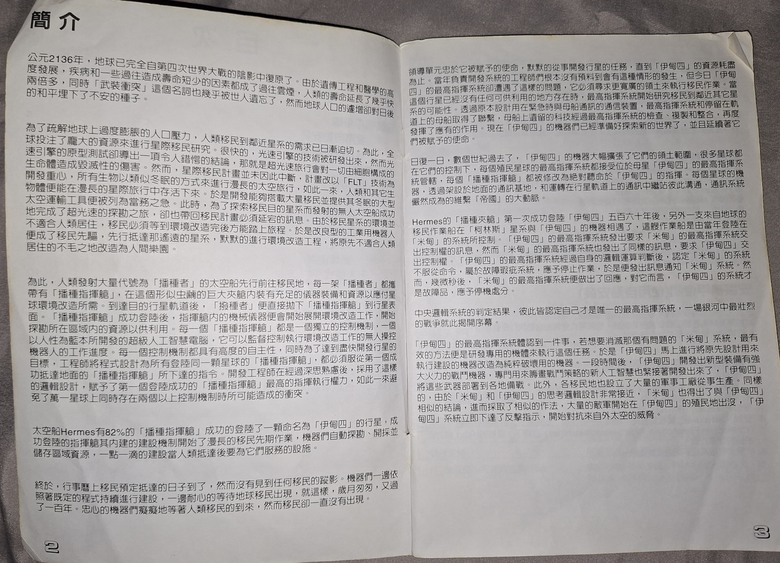 簡介
公元2136年，地球已完全自第四次世界大戰的陰影中復原了。由於遺傳工程和醫學的高
度發展，疾病和一些過往造成壽命短少的因素都成了過往雲煙，人類的壽命延長了幾乎快
兩倍多，同時「武裝衝突」這個名詞也幾乎被世人遺忘了，然而地球人口的遽增卻對日後
的和平埋下了不安的種子。
為了疏解地球上過度膨脹的人口壓力，人類移民到鄰近星系的需求已日漸迫切。為此，全
球投注了龐大的資源來進行星際移民研究。很快的，光速引擎的技術被研發出來，然而光
速引擎的原型測試卻導出一項令人錯愕的結論，那就是超光速旅行會對一切由細胞構成的
生命體造成毀滅性的傷害。然而，星際移民計畫並未因此中斷，計畫改以「FLT」技術為
開發重心，所有生物以類似冬眠的方式來進行漫長的太空旅行，如此一來，人類和其它生
物體便能在漫長的星際旅行中存活下來。於是開發能夠搭載大量移民並提供其冬眠的大型
太空運輸工具便被列為當務之急。此時，為了探索移民目的星系而發射的無人太空船成功
地完成了超光速的探勘之旅，卻也帶回移民計畫必須延遲的訊息。由於移民星系的環境並
不適合人類居住，移民必須等到環境改造完後方能踏上旅程。於是改良型的工業用機器人
便成了移民先驅，先行抵達那遙遠的星系，默默的進行環境改造工程，將原先不適合人類
居住的不毛之地改造為人間樂園。
為此，人類發射大量代號為「播種者」的太空船先行前往移民地，每一架「播種者」都攜
帶有「播種指揮艙」，在這個形似虫繭的巨大夾艙內裝有充足的儀器裝備和資源以應付星
球環境改造所需。到達目的行星軌道後，「播種者」便直接拋下「播種指揮艙」到行星表
面。「播種指揮艙」成功登陸後，指揮艙內的機械儀器便會開始展開環境改造工作，開始
探勘所在區域內的資源以供利用。每一個「播種指揮艙」都是一個獨立的控制機制，一個
以人性為藍本所開發的超級人工智慧電腦，它可以監督控制執行環境改造工作的無人操控
機器人的工作進度。每一個控制機都具有高度的自主性，同時為了達到盡快開發行星的
目標，工程師將程式設計為所有登陸同一顆星球的「播種指揮艙」，都必須服從第一個成
功抵達地面的「播種指揮艙」所下達的指令。開發工程師在經過深思熟慮後，採用了這樣
的邏輯設計，賦予了第一個登陸成功的「播種指揮艙」最高的指揮執行權力，如此一來避
免了萬一星球上同時存在兩個以上控制機制時所可能造成的衝突。
太空船Hermes有82%的「播種指揮艙」成功的登陸了一顆命名為「伊甸四」的行星，成
功登陸的指揮艙其內建的建設機制開始了漫長的移民先期作業，機器們自動探勘、開採並
儲存區域資源，一點一滴的建設當人類抵達後要為它們服務的設施。
終於，行事曆上移民預定抵達的日子到了，然而沒有見到任何移民的蹤影。機器們一邊依
照著既定的程式持續進行建設，一邊耐心的等待地球移民出現，就這樣，歲月匆匆，又過
了一百年。忠心的機器們癡癡地等著人類移民的到來，然而移民卻一直沒有出現。
2
領導單元忠於它被賦予的使命，默默的從事開發行星的任務，直到「伊甸四」的資源耗盡
為止。當年負責開發系統的工程師們根本沒有預料到會有這種情形的發生，但今日「伊甸
四」的最高指揮系統卻遭遇了這樣的問題，它必須尋求更寬廣的領土來執行移民作業，當
這個行星已經沒有任何可供利用的地方存在時，最高指揮系統開始研究移民到鄰近其它星
系的可能性。透過原本設計用在緊急時與母船通訊的通信裝置，最高指揮系統和停留在軌
道上的母船取得了聯繫，母船上遺留的科技經過最高指揮系統的檢查、複製和整合，再度
發揮了應有的作用。現在「伊甸四」的機器們已準備好探索新的世界了，並且延續著它
們被賦予的使命。
日復一日，數個世紀過去了，「伊甸四」的機器大幅擴張了它們的領土範圍，很多星球都
在它們的控制下，每個殖民星球的最高指揮系統都接受位於母星「伊甸四」的最高指揮系
統管轄，每個「播種指揮艙」都被修改為絕對聽命於「伊甸四」的指揮。每個星球的機
器，透過架設於地面的通訊基地，和運轉在行星軌道上的通訊中繼站彼此溝通，通訊系統
儼然成為的維繫「帝國」的大動脈。
Hermes的「播種夾艙」第一次成功登陸「伊甸四」五百六十年後，另外一支來自地球的
移民作業船在「柯林斯」星系與「伊甸四」的機器相遇了，這艘作業船是由當年登陸在
「米甸」的系統所控制。「伊甸四」的最高指揮系統發出要求「米甸」的最高指揮系統交
出控制權的訊息，然而「米甸」的最高指揮系統也發出了同樣的訊息，要求「伊甸四」交
出控制權。「伊甸四」的最高指揮系統經過自身的邏輯運算判斷後，認定「米甸」的系統
不服從命令，屬於故障瑕疵系統，應予停止作業，於是便發出訊息通知「米甸」系統，然
而，幾微秒後，「米甸」的最高指揮系統便做出了回應，對它而言，「伊甸四」的系統才
是故障品，應予停機處分。
中央邏輯系統的判定結果，彼此皆認定自己才是唯一的最高指揮系統，一場銀河中最壯烈
的戰爭就此揭開序幕。
「伊甸四」的最高指揮系統體認到一件事，若想要消滅那個有問題的「米甸」系統，最有
效的方法便是研發專用的機體來執行這個任務，於是「伊甸四」馬上進行將原先設計用來
執行建設的機器改造為純粹破壞用的機器。一段時間後，「伊甸四」開發出新型裝備有強
大火力的戰鬥機器，專門用來籌畫戰鬥策略的新人工智慧也緊接著開發出來了，「伊甸四」
將這些武器部署到各地備戰。此外，各移民地也設立了大量的軍事工廠從事生產。同樣
的，由於「米甸」和「伊甸四」的思考邏輯設計非常接近，「米甸」也得出了與「伊甸四」
相似的結論，進而採取了相似的作法，大量的敵軍開始在「伊甸四」的殖民地出沒，「伊
甸四」系統立即下達了反擊指示，開始對抗來自外太空的威脅。
3